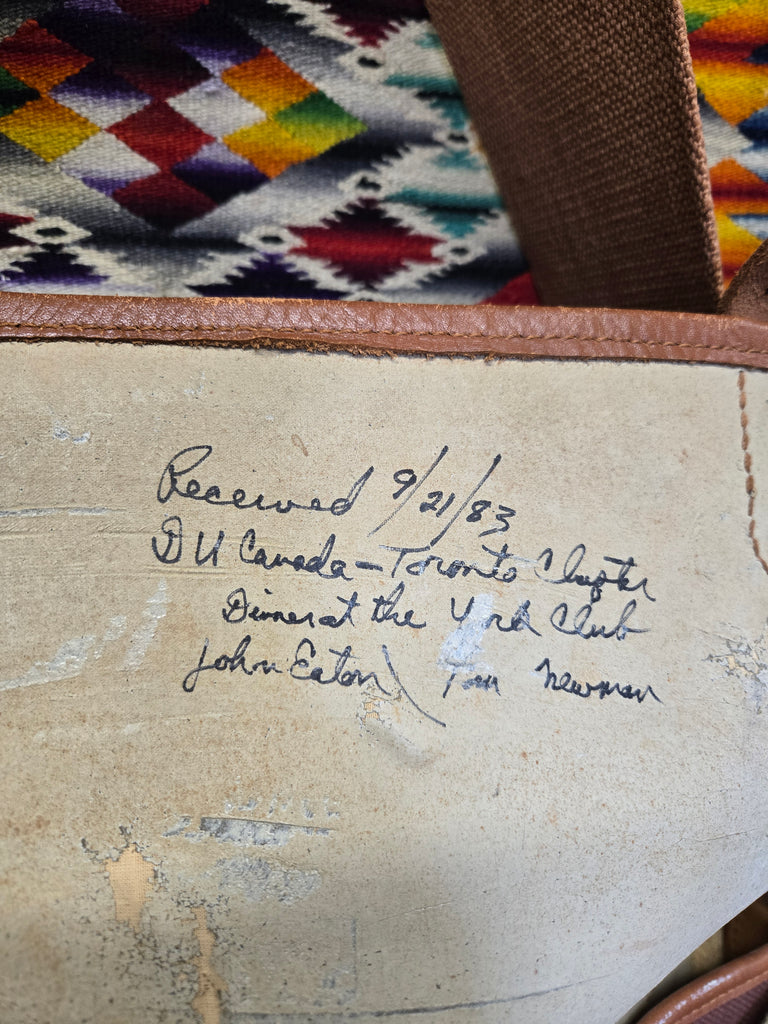 Received 9/21/83
DU Canada - Toronto Chapter
Dinner at the York Club
John Eaton \ Tom Newman